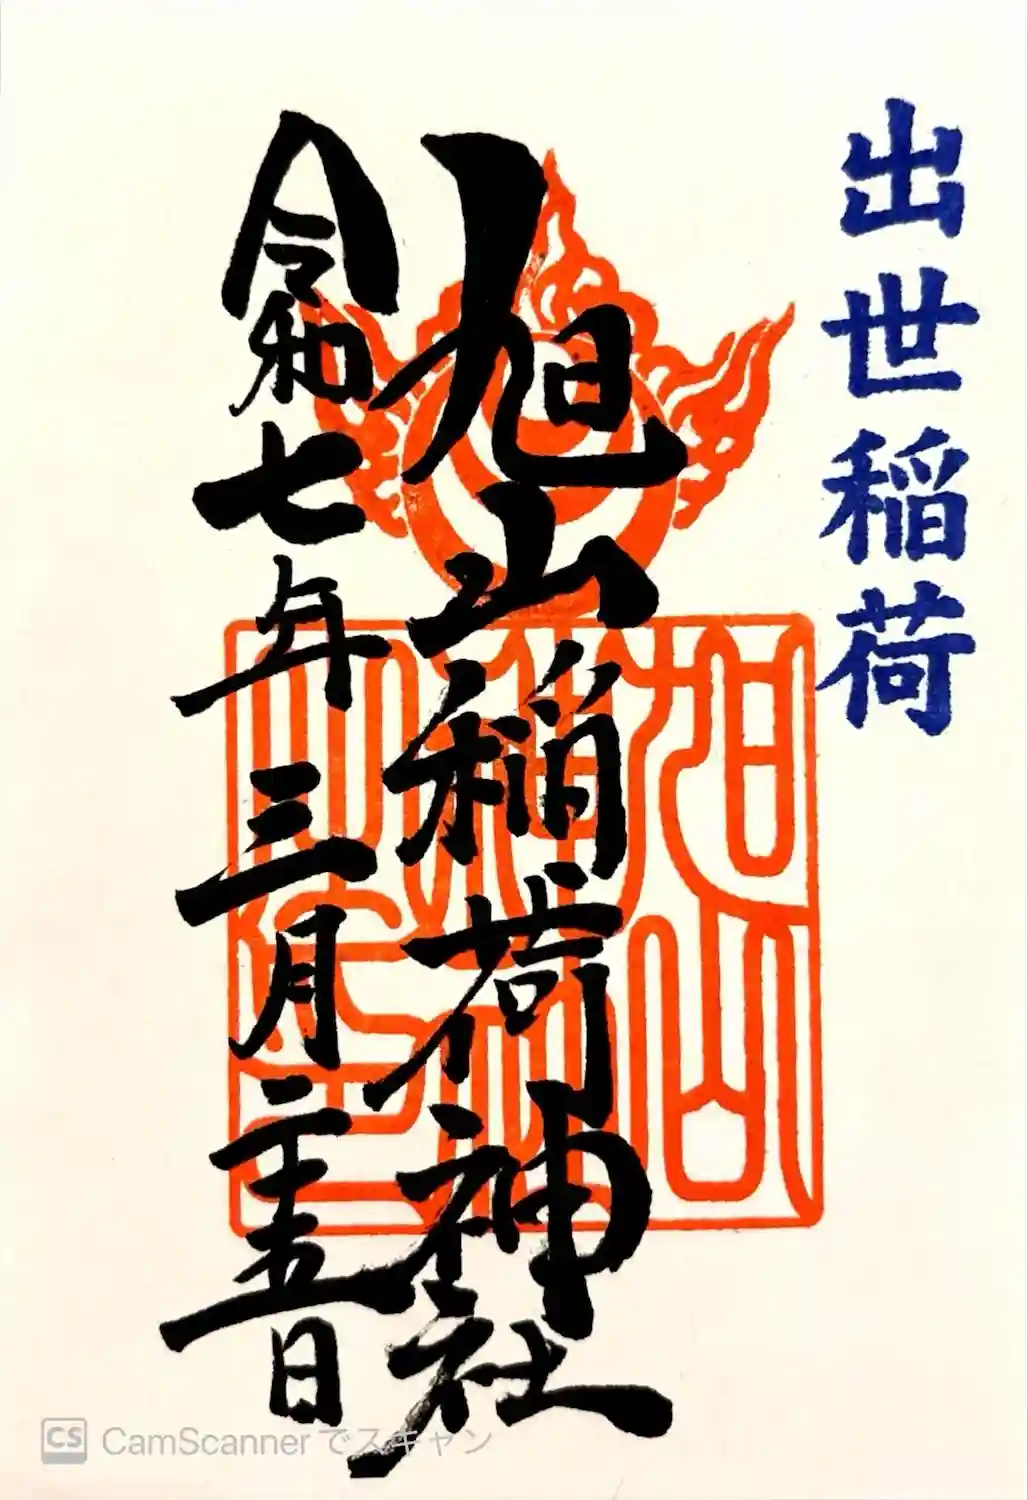 出世稲荷
旭山稲荷神社
令和七年三月二十五日
CS CamScannerでスキャン